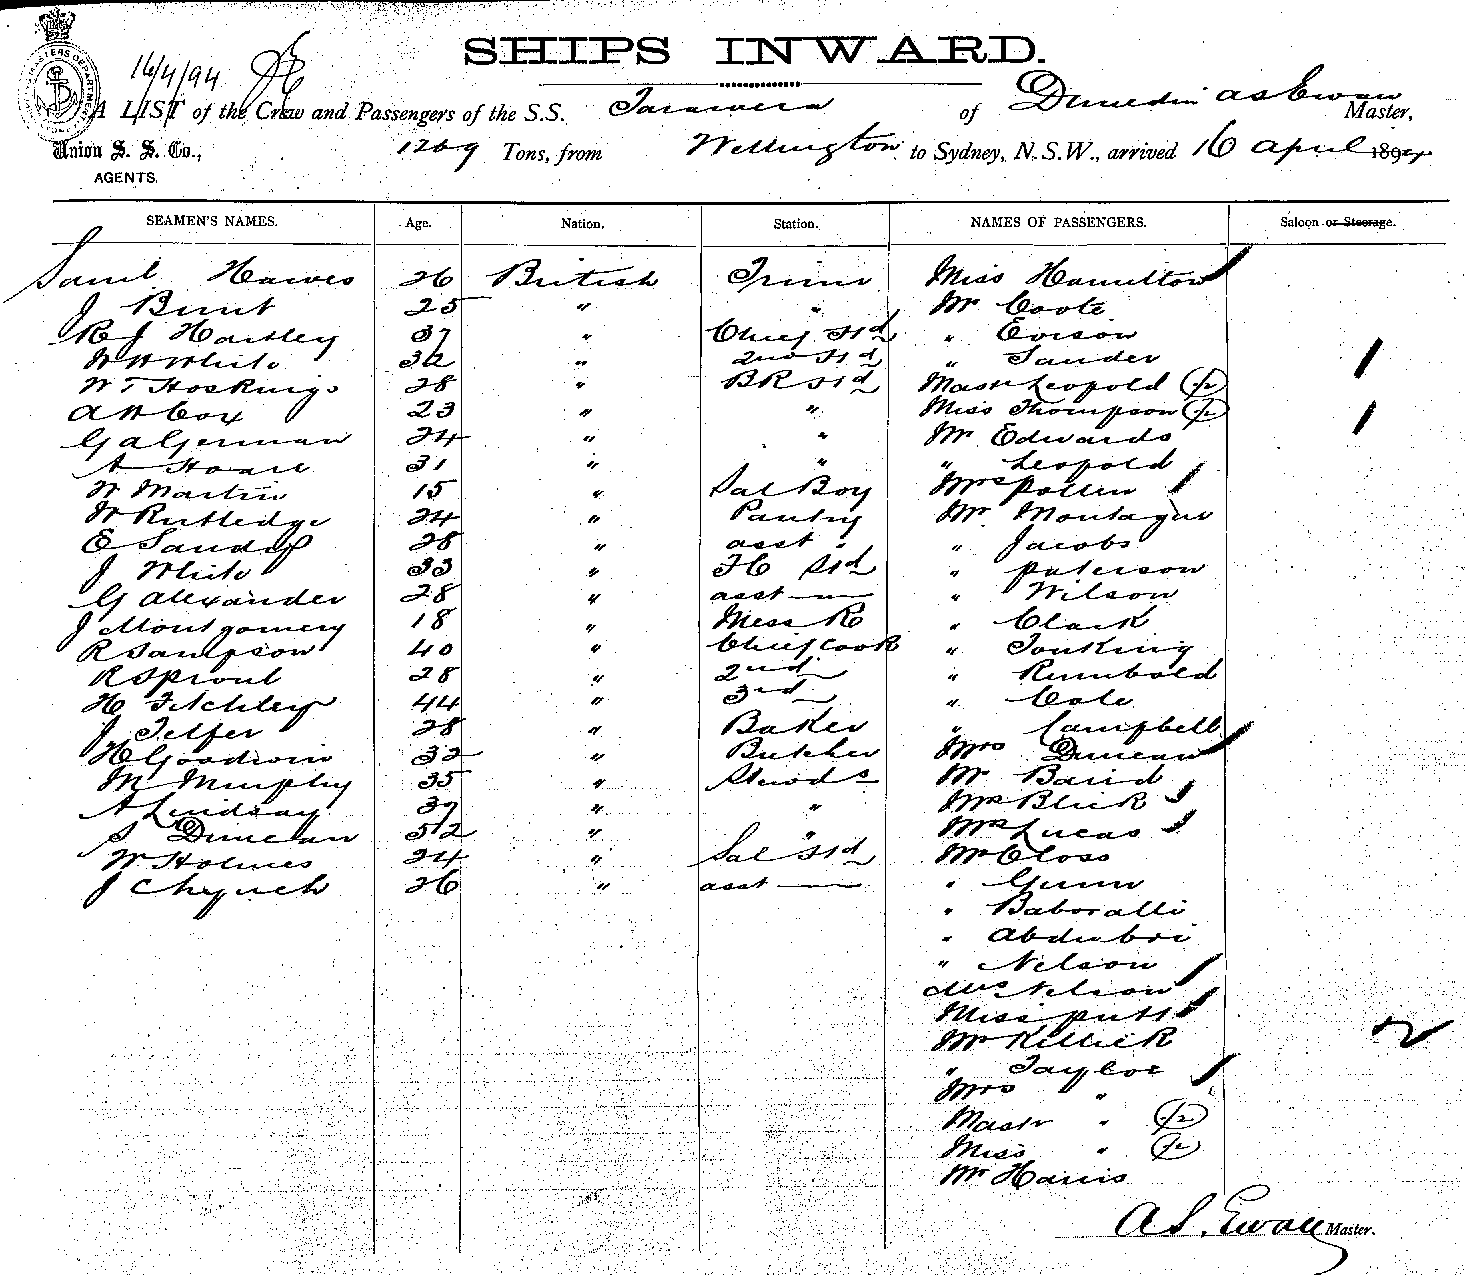 SHIPS INWARD.
16/4/94
A LIST of the Crew and Passengers of the S.S. Tarawera of Dunedin A S Ewan Master,
Union S. S. Co., 1269 Tons, from Wellington to Sydney, N.S.W., arrived 16 April 1894
AGENTS.
SEAMEN'S NAMES. Age. Nation. Station. NAMES OF PASSENGERS. Saloon or Steerage.
Saml Hawes 26 British Trimr Miss Hamilton
J Bunt 25 " " Mr Coote
R J Hartley 37 " Chief Std " Evison
W H White 32 " 2nd Std " Sander
W T Hoskings 28 " BR Std Mastr Leopold (1/2)
A H Cox 23 " " Miss Thompson (1/2)
G A German 24 " " Mr Edwards
A Hoare 31 " " " Leopold
W Martin 15 " Sal Boy Mrs Pollen
W Rutledge 24 " Pantry Mr Montague
E Sandy 28 " asst " " Jacobs
J White 33 " FC Std " Paterson
G Alexander 28 " asst — " Wilson
J Montgomery 18 " Mess R " Clark
R Sampson 40 " Chief Cook " Tonking
R Sproul 28 " 2nd " Rumbold
H Fitchley 44 " 3rd " Cole
J Telfer 28 " Baker " Campbell
H Goodwin 32 " Butcher Mrs Duncan
M Murphy 35 " Stewds Mr Baird
A Lindsay 37 " " Mrs Blick
S Duncan 52 " " Mrs Lucas
W Holmes 24 " Sal Std Mr Closs
J Chynch 26 " asst — " Gunn
" Baboralli
" Abdubri
" Nelson
Mrs Nelson
Miss Putt
Mr Killick
" Taylor
Mrs "
Mastr " (1/2)
Miss " (1/2)
Mr Harris
A S. Ewan Master.